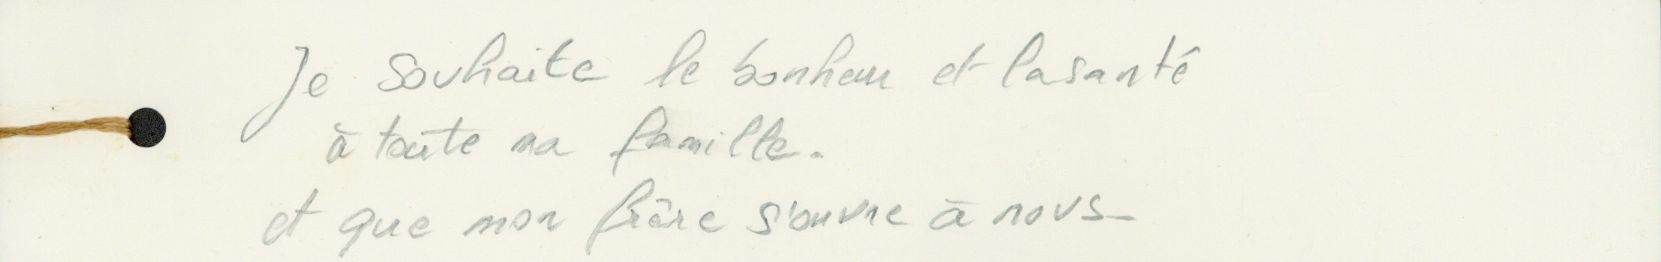 Je souhaite le bonheur et la santé
à toute ma famille.
et que mon frère s'ouvre à nous_